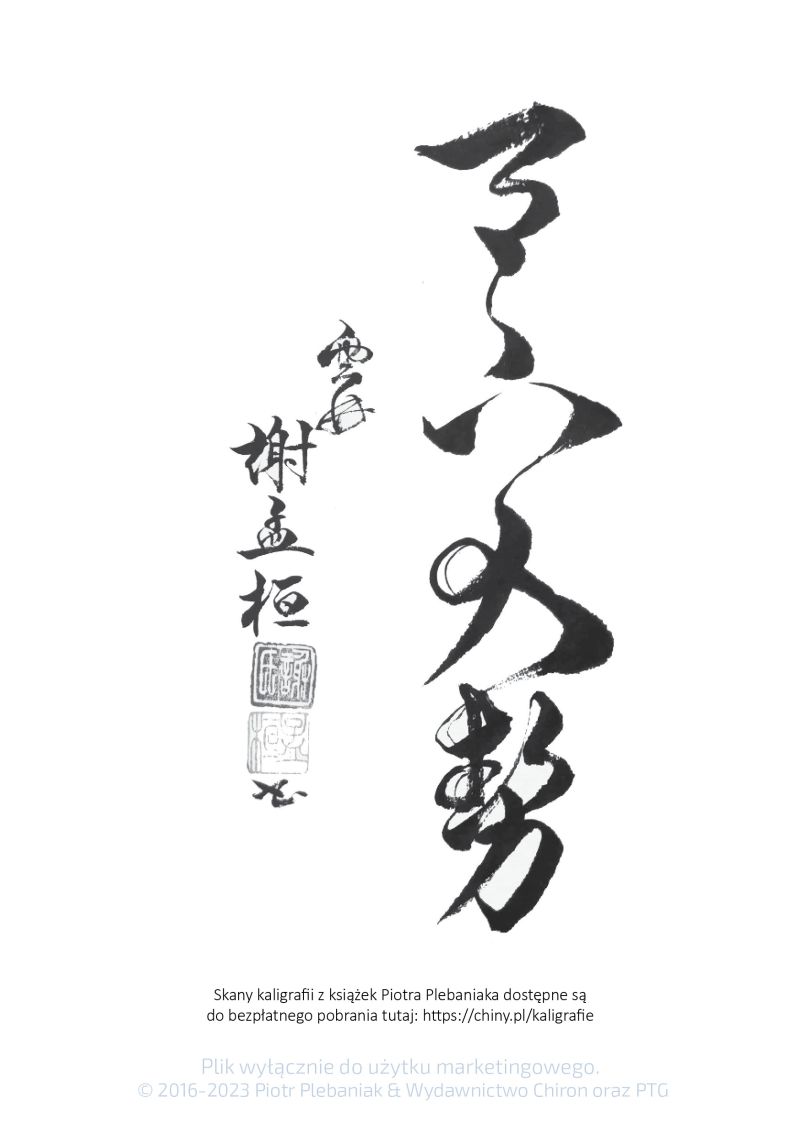 大勢
雲海
謝孟桓
書
Skany kaligrafii z książek Piotra Plebaniaka dostępne są
do bezpłatnego pobrania tutaj: https://chiny.pl/kaligrafie
Plik wyłącznie do użytku marketingowego.
© 2016-2023 Piotr Plebaniak & Wydawnictwo Chiron oraz PTG